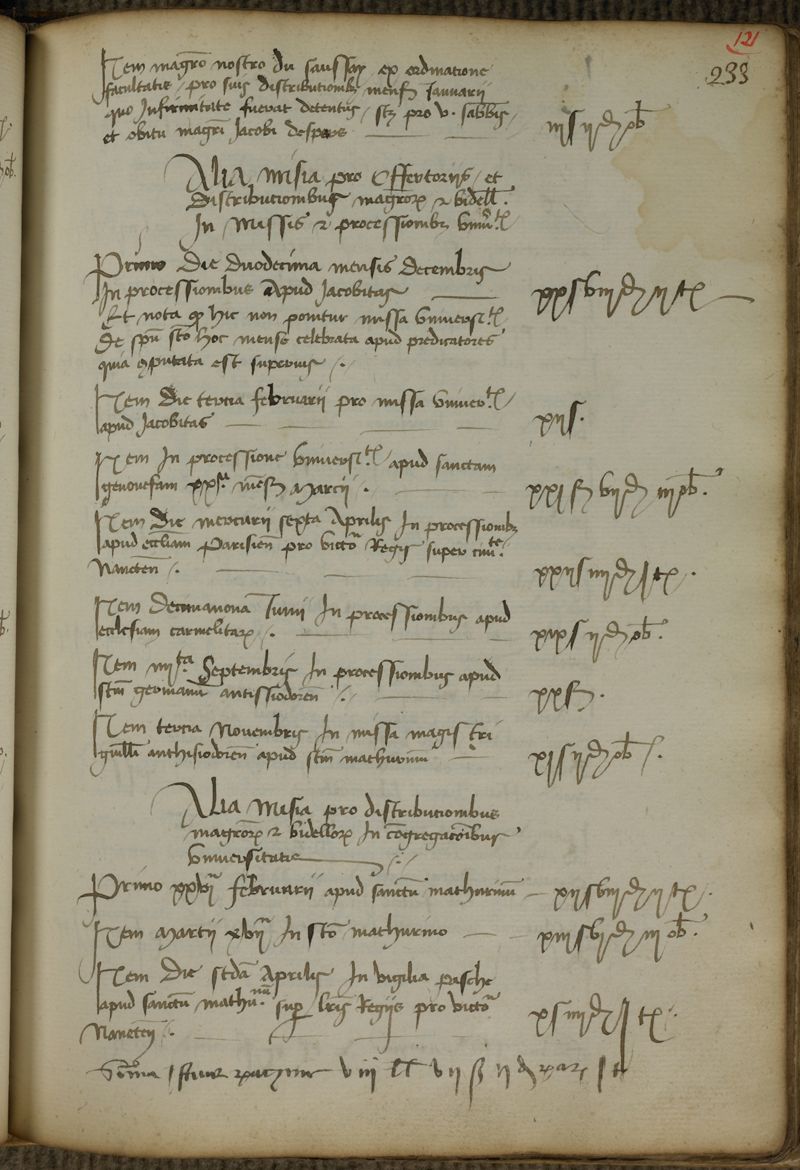 121
233
Item magro nostro du saussay ex ordinatione
facultatis / pro suis distributionibz mensis Januarii
quo Infirmitate fuerat detentus / pro v. sabbis /
et obitu magri Jacobi despars iiis iid ob
Alia misia pro Offertoriis / et
distributionibus magrorum et bidell.
In Missis et processionibz univtis
Primo Die duodecima mensis Decembris
In processionibus Apud Jacobitas xxs viiid ii tz
Et nota qz hic non ponitur missa universitis
De spu sto hoc mense celebrata apud predicatores
quia computata est superius /.
Item Die tercia februarii pro missa universitis
apud Jacobitas xiis.
Item In processione universitis apud sanctam
genovefam xxa mensis Marcii . xxis viid ob.
Item Die mercurii sexta Aprilis In processionibz
apud eccliam Parisien pro victoria Regis super civitte
Nanneten /. xxiis iiiid i tz.
Item Decimanona Junii In processionibus apud
ecclesiam carmelitarum /. xixs iid ob.
Item iiiita Septembris In processionibus apud
stm germanum antissiodoren /. xxs.
Item tercia Novembris In missa magistri
guilli anthisiodoren apud stm mathurinum xis iid ob /.
Alia Misia pro distributionibus
magrorum et bidellorum In congregacionibus
universitatis
Primo xxvi februarii apud sanctum mathurinum xiis viiid ii tz.
Item Martii xvii In sto mathurino xiiis vid ob.
Item Die scda Aprilis In vigilia pasche
apud sanctum mathum. super lris Regiis pro victoria
Nanneten /. xs iiiid i tz.
Summa viii ll vii s ii d par i t